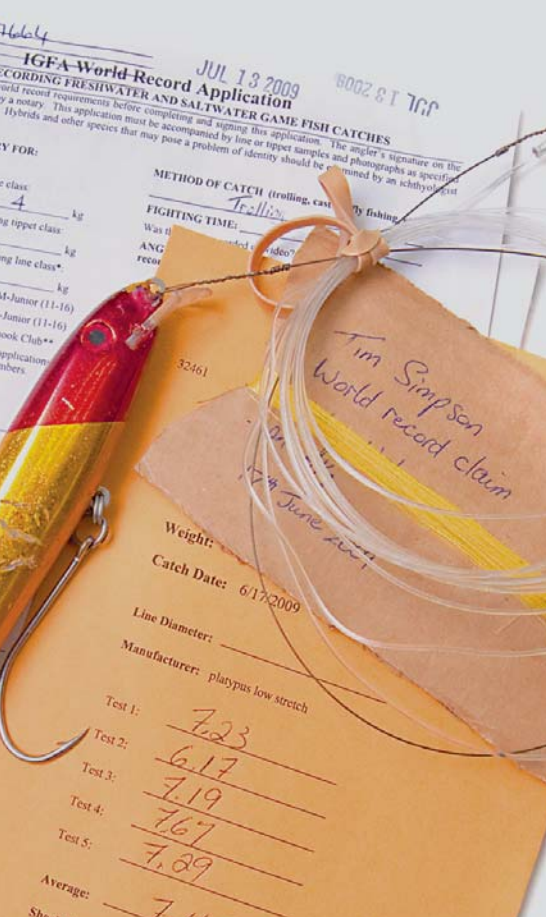 7664
IGFA World Record Application
JUL 13 2009
JUL 13 2009
RECORDING FRESHWATER AND SALTWATER GAME FISH CATCHES
world record requirements before completing and signing this application. The angler's signature on the
by a notary. This application must be accompanied by line or tippet samples and photographs as specified
Hybrids and other species that may pose a problem of identity should be examined by an ichthyologist
RY FOR:
e class:
4 kg
ng tippet class:
kg
ng line class*.
kg
M-Junior (11-16)
-Junior (11-16)
ook Club**
application
mbers.
METHOD OF CATCH (trolling, cast fly fishing,
Trolling
FIGHTING TIME:
Was th ded video
ANG
recor
32461
Tim Simpson
World record claim
17th June
Weight:
Catch Date: 6/17/2009
Line Diameter:
Manufacturer: platypus low stretch
Test 1: 7.23
Test 2: 6.17
Test 3: 7.19
Test 4: 7.67
Test 5: 7.29
Average: 7.